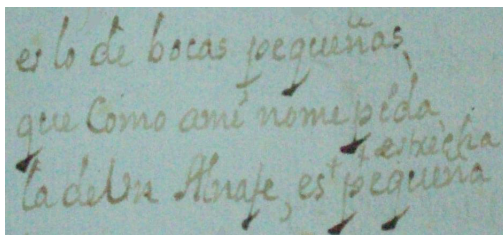 es lo de bocas pequeñas,
que como ami no me pida
estrecha
la de un Alnafe, es pequeña